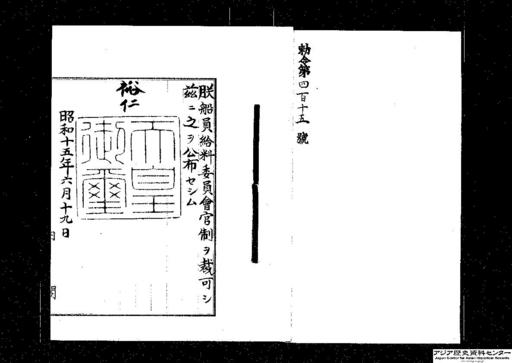 勅令第四百十五號
朕船員給料委員會官制ヲ裁可シ
茲ニ之ヲ公布セシム
裕仁
天皇
御璽
昭和十五年六月十九日
内閣
アジア歴史資料センター
Japan Center for Asian Historical Records